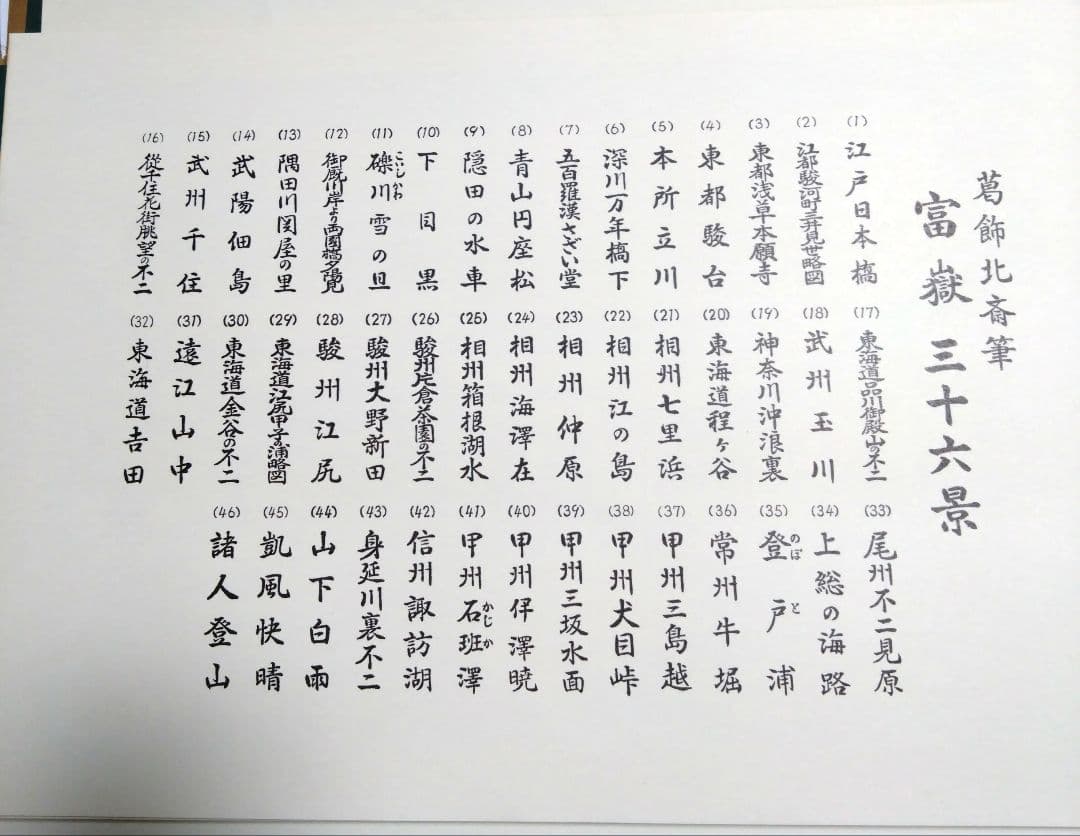 葛飾北斎筆
富嶽三十六景
(1) 江戸日本橋
(2) 江都駿河町三井見世略図
(3) 東都浅草本願寺
(4) 東都駿台
(5) 本所立川
(6) 深川万年橋下
(7) 五百羅漢さざい堂
(8) 青山円座松
(9) 隠田の水車
(10) 下目黒
(11) 礫川雪の旦 こいしかわ
(12) 御厩川岸より両國橋夕陽見
(13) 隅田川関屋の里
(14) 武陽佃島
(15) 武州千住
(16) 從千住花街眺望の不二
(17) 東海道品川御殿山の不二
(18) 武州玉川
(19) 神奈川沖浪裏
(20) 東海道程ヶ谷
(21) 相州七里浜
(22) 相州江の島
(23) 相州仲原
(24) 相州海澤在
(25) 相州箱根湖水
(26) 駿州片倉茶園の不二
(27) 駿州大野新田
(28) 駿州江尻
(29) 東海道江尻田子の浦略図
(30) 東海道金谷の不二
(31) 遠江山中
(32) 東海道吉田
(33) 尾州不二見原
(34) 上総の海路
(35) 登戸浦 のぼと
(36) 常州牛堀
(37) 甲州三島越
(38) 甲州犬目峠
(39) 甲州三坂水面
(40) 甲州伊澤暁
(41) 甲州石班澤 かじか
(42) 信州諏訪湖
(43) 身延川裏不二
(44) 山下白雨
(45) 凱風快晴
(46) 諸人登山